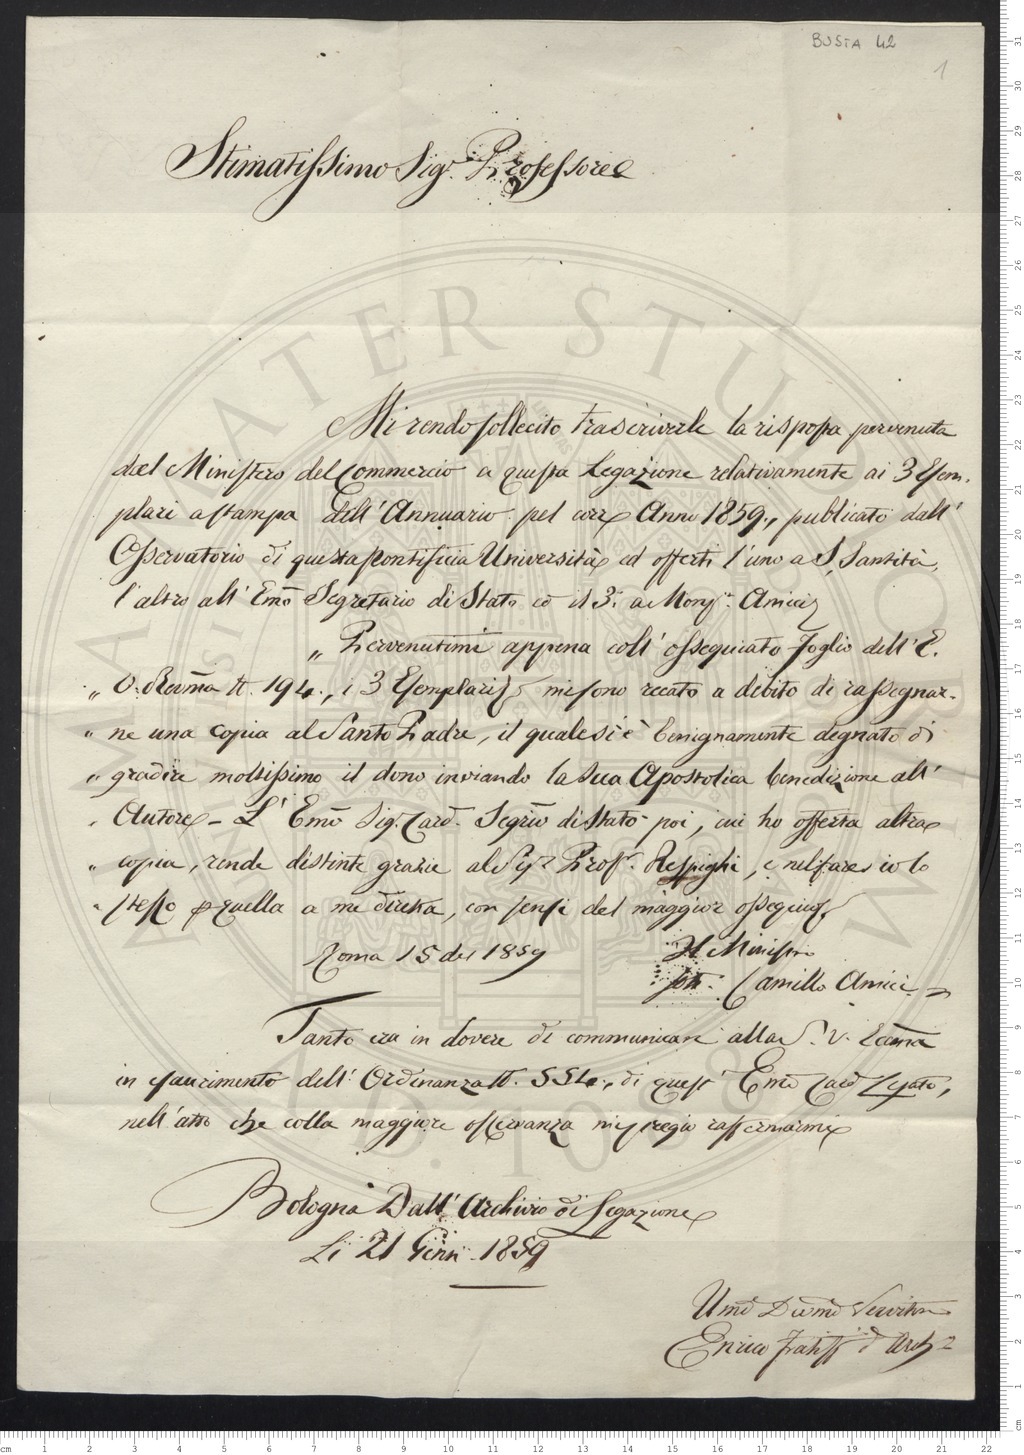 BUSTA 42
1
Stimatissimo Sigr. Professore
Mi rendo sollecito trascriverle la risposta pervenuta
dal Ministero del Commercio a questa Legazione relativamente ai 3 Esem-
plari a stampa dell' Annuario pel corre Anno 1859., publicato dall'
Osservatorio di questa Pontificia Università ed offerti l'uno a S. Santità,
l'altro all' Emo Segretario di Stato ed il 3°. a Monsr. Amici
„ Pervenutimi appena coll' ossequiato foglio dell' E.
„ V. Revma N. 194., i 3 Esemplari mi sono recato a debito di rassegnar-
„ ne una copia al Santo Padre, il quale si è benignamente degnato di
„ gradire moltissimo il dono inviando la sua Apostolica benedizione all'
„ Autore – L' Emo Sigr. Card. Segrio di Stato poi, cui ho offerta altra
„ copia, rende distinte grazie al Sigr. Prof. Respighi, e nel fare io lo
„ stesso per quella a me diretta, con sensi del maggior ossequio
Roma 15 del 1859
Il Ministro
Camillo Amici
Tanto era in dovere di communicare alla S. V. Ecma
in esaurimento dell' Ordinanza N. 554., di quest' Emo Card Legato,
nell'atto che colla maggiore osservanza mi pregio raffermarmi
Bologna Dall' Archivio di Legazione
Li 21 Genn. 1859
Umo Devmo Servitore
Enrico